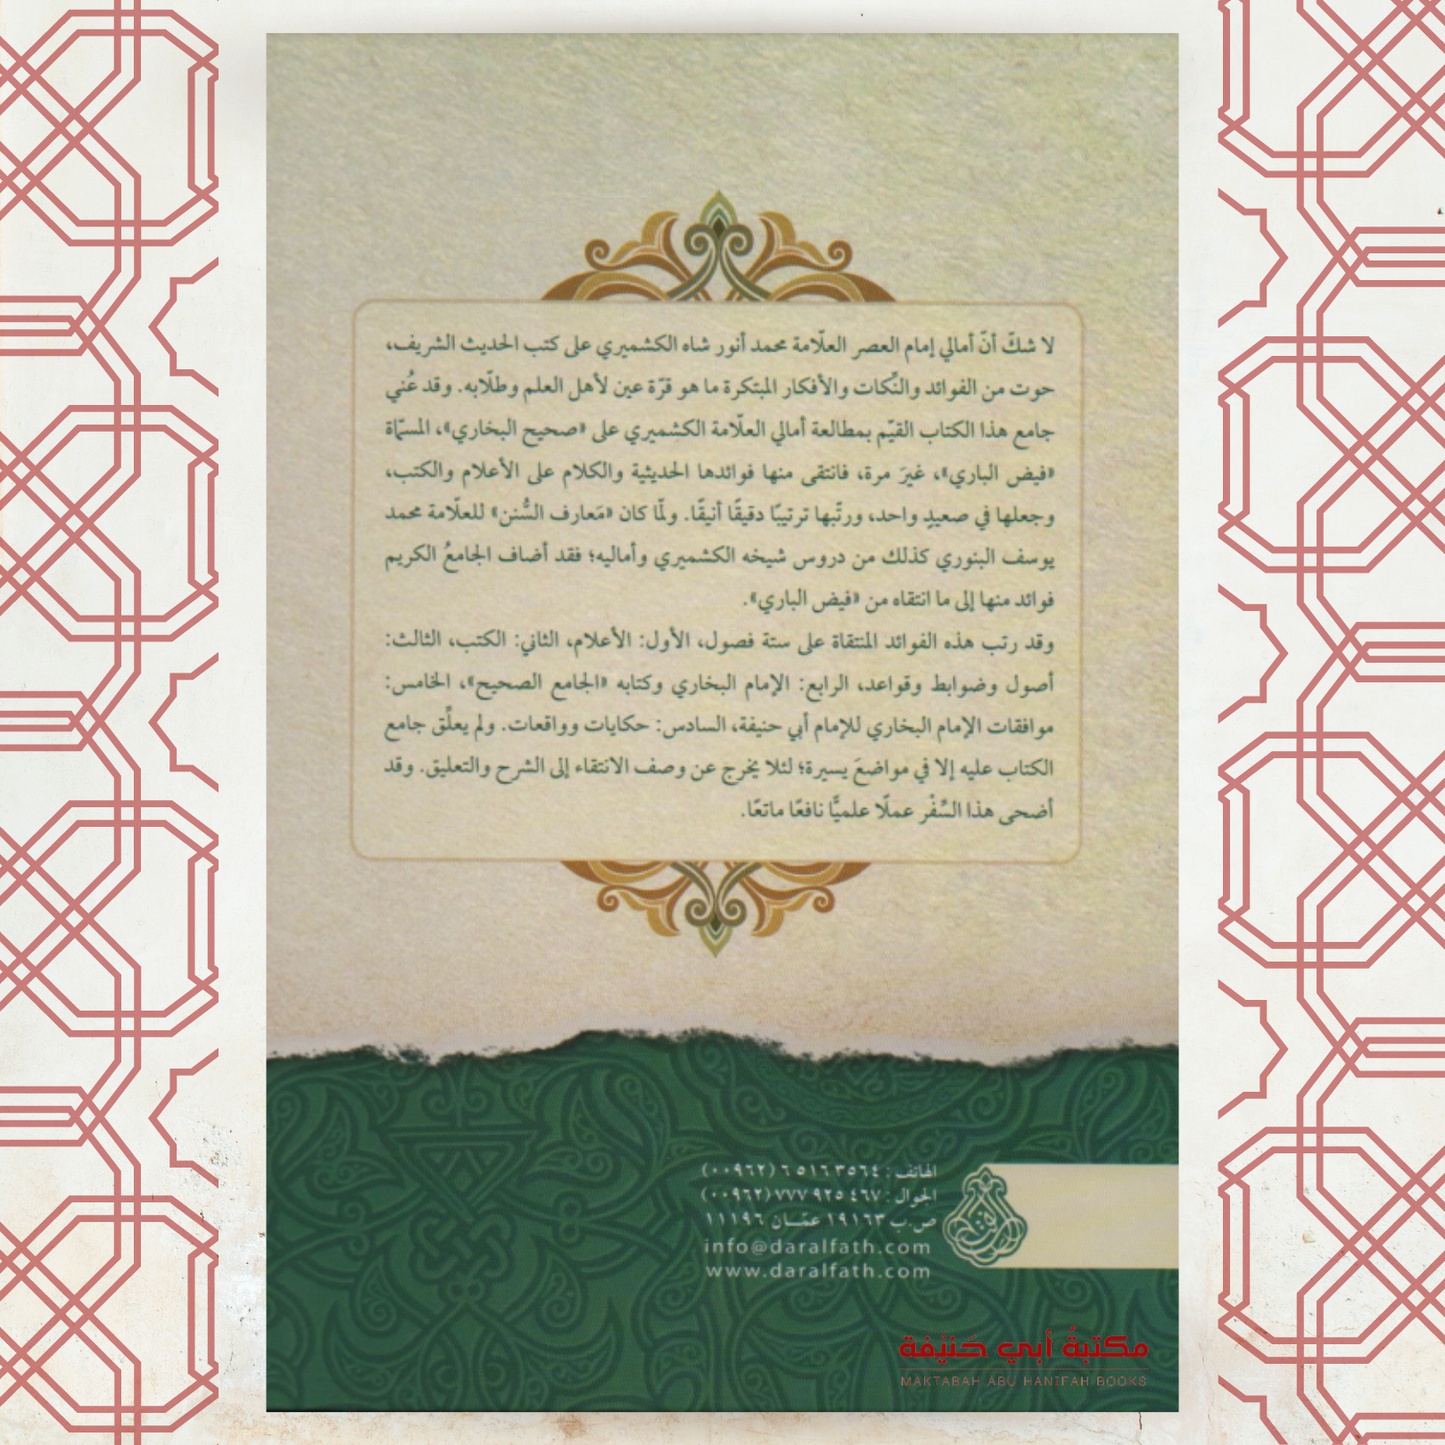 لا شكّ أنّ أمالي إمام العصر العلّامة محمد أنور شاه الكشميري على كتب الحديث الشريف،
حوت من الفوائد والنِّكات والأفكار المبتكرة ما هو قرّة عين لأهل العلم وطلّابه. وقد عُني
جامع هذا الكتاب القيّم بمطالعة أمالي العلّامة الكشميري على «صحيح البخاري»، المسمّاة
«فيض الباري»، غيرَ مرة، فانتقى منها فوائدها الحديثية والكلام على الأعلام والكتب،
وجعلها في صعيدٍ واحد، ورتّبها ترتيبًا دقيقًا أنيقًا. ولمّا كان «مَعارف السُّنن» للعلّامة محمد
يوسف البنوري كذلك من دروس شيخه الكشميري وأماليه؛ فقد أضاف الجامعُ الكريم
فوائد منها إلى ما انتقاه من «فيض الباري».
وقد رتب هذه الفوائد المنتقاة على ستة فصول، الأول: الأعلام، الثاني: الكتب، الثالث:
أصول وضوابط وقواعد، الرابع: الإمام البخاري وكتابه «الجامع الصحيح»، الخامس:
موافقات الإمام البخاري للإمام أبي حنيفة، السادس: حكايات وواقعات. ولم يعلِّق جامع
الكتاب عليه إلا في مواضعَ يسيرة؛ لئلا يخرج عن وصف الانتقاء إلى الشرح والتعليق. وقد
أضحى هذا السِّفْر عملًا علميًّا نافعًا ماتعًا.
الهاتف : ٦ ٥١٦ ٣٥٦٤ (٠٠٩٦٢)
الجوال : ٧٧٧ ٩٢٥ ٤٦٧ (٠٠٩٦٢)
ص.ب ١٩١٦٣ عمّان ١١١٩٦
info@daralfath.com
www.daralfath.com
مكتبةُ أبي حَنيْفة
MAKTABAH ABU HANIFAH BOOKS